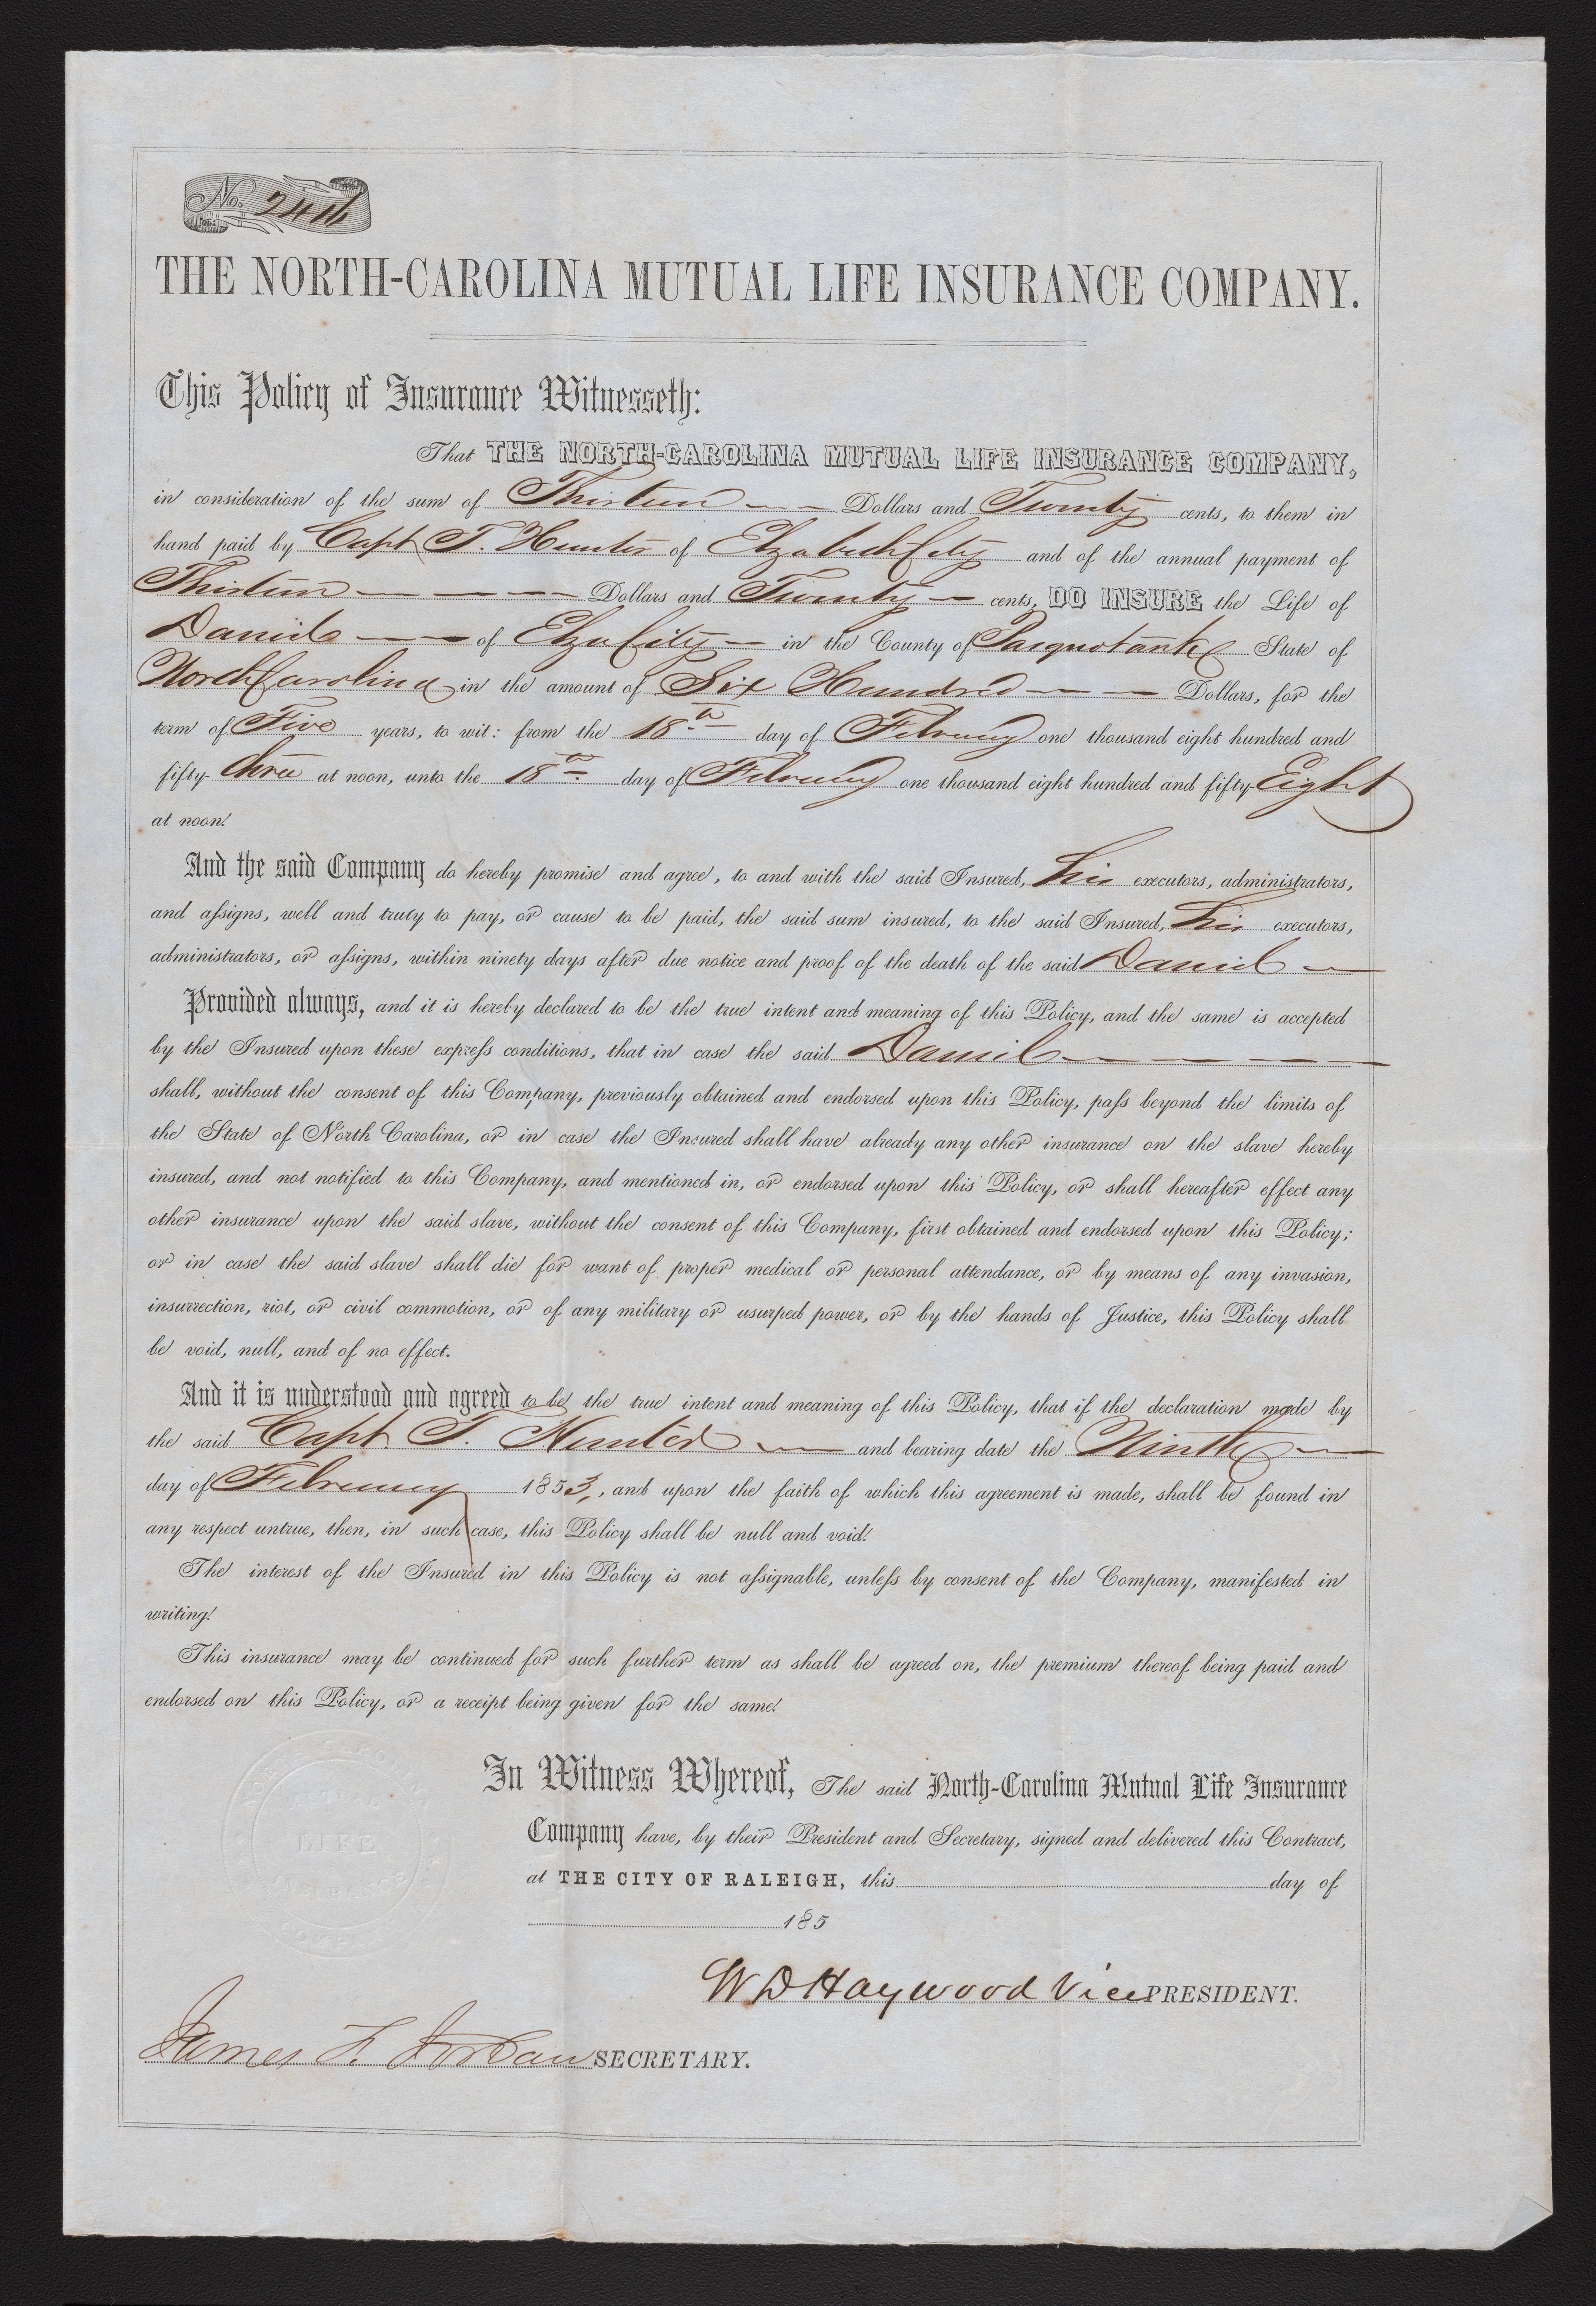 No. 2416
THE NORTH-CAROLINA MUTUAL LIFE INSURANCE COMPANY.
This Policy of Insurance Witnesseth:
That THE NORTH-CAROLINA MUTUAL LIFE INSURANCE COMPANY,
in consideration of the sum of Thirteen Dollars and Twenty cents, to them in
hand paid by Capt T. Hunter of Elzabeth City and of the annual payment of
Thirteen Dollars and Twenty cents, DO INSURE the Life of
Daniel of Elza City in the County of Pasquotank State of
North Carolina in the amount of Six Hundred Dollars, for the
term of Five years, to wit: from the 18th day of February one thousand eight hundred and
fifty-three at noon, unto the 18th day of February one thousand eight hundred and fifty-Eight
at noon.
And the said Company do hereby promise and agree, to and with the said Insured, his executors, administrators,
and assigns, well and truly to pay, or cause to be paid, the said sum insured, to the said Insured, his executors,
administrators, or assigns, within ninety days after due notice and proof of the death of the said Daniel
Provided always, and it is hereby declared to be the true intent and meaning of this Policy, and the same is accepted
by the Insured upon these express conditions, that in case the said Daniel
shall, without the consent of this Company, previously obtained and endorsed upon this Policy, pass beyond the limits of
the State of North Carolina, or in case the Insured shall have already any other insurance on the slave hereby
insured, and not notified to this Company, and mentioned in, or endorsed upon this Policy, or shall hereafter effect any
other insurance upon the said slave, without the consent of this Company, first obtained and endorsed upon this Policy;
or in case the said slave shall die for want of proper medical or personal attendance, or by means of any invasion,
insurrection, riot, or civil commotion, or of any military or usurped power, or by the hands of Justice, this Policy shall
be void, null, and of no effect.
And it is understood and agreed to be the true intent and meaning of this Policy, that if the declaration made by
the said Capt T. Hunter and bearing date the Ninth
day of February 1853, and upon the faith of which this agreement is made, shall be found in
any respect untrue, then, in such case, this Policy shall be null and void.
The interest of the Insured in this Policy is not assignable, unless by consent of the Company, manifested in
writing.
This insurance may be continued for such further term as shall be agreed on, the premium thereof being paid and
endorsed on this Policy, or a receipt being given for the same.
In Witness Whereof, The said North-Carolina Mutual Life Insurance
Company have, by their President and Secretary, signed and delivered this Contract,
at THE CITY OF RALEIGH, this day of
185
W D Haywood Vice PRESIDENT.
James F. Jordan SECRETARY.
LIFE